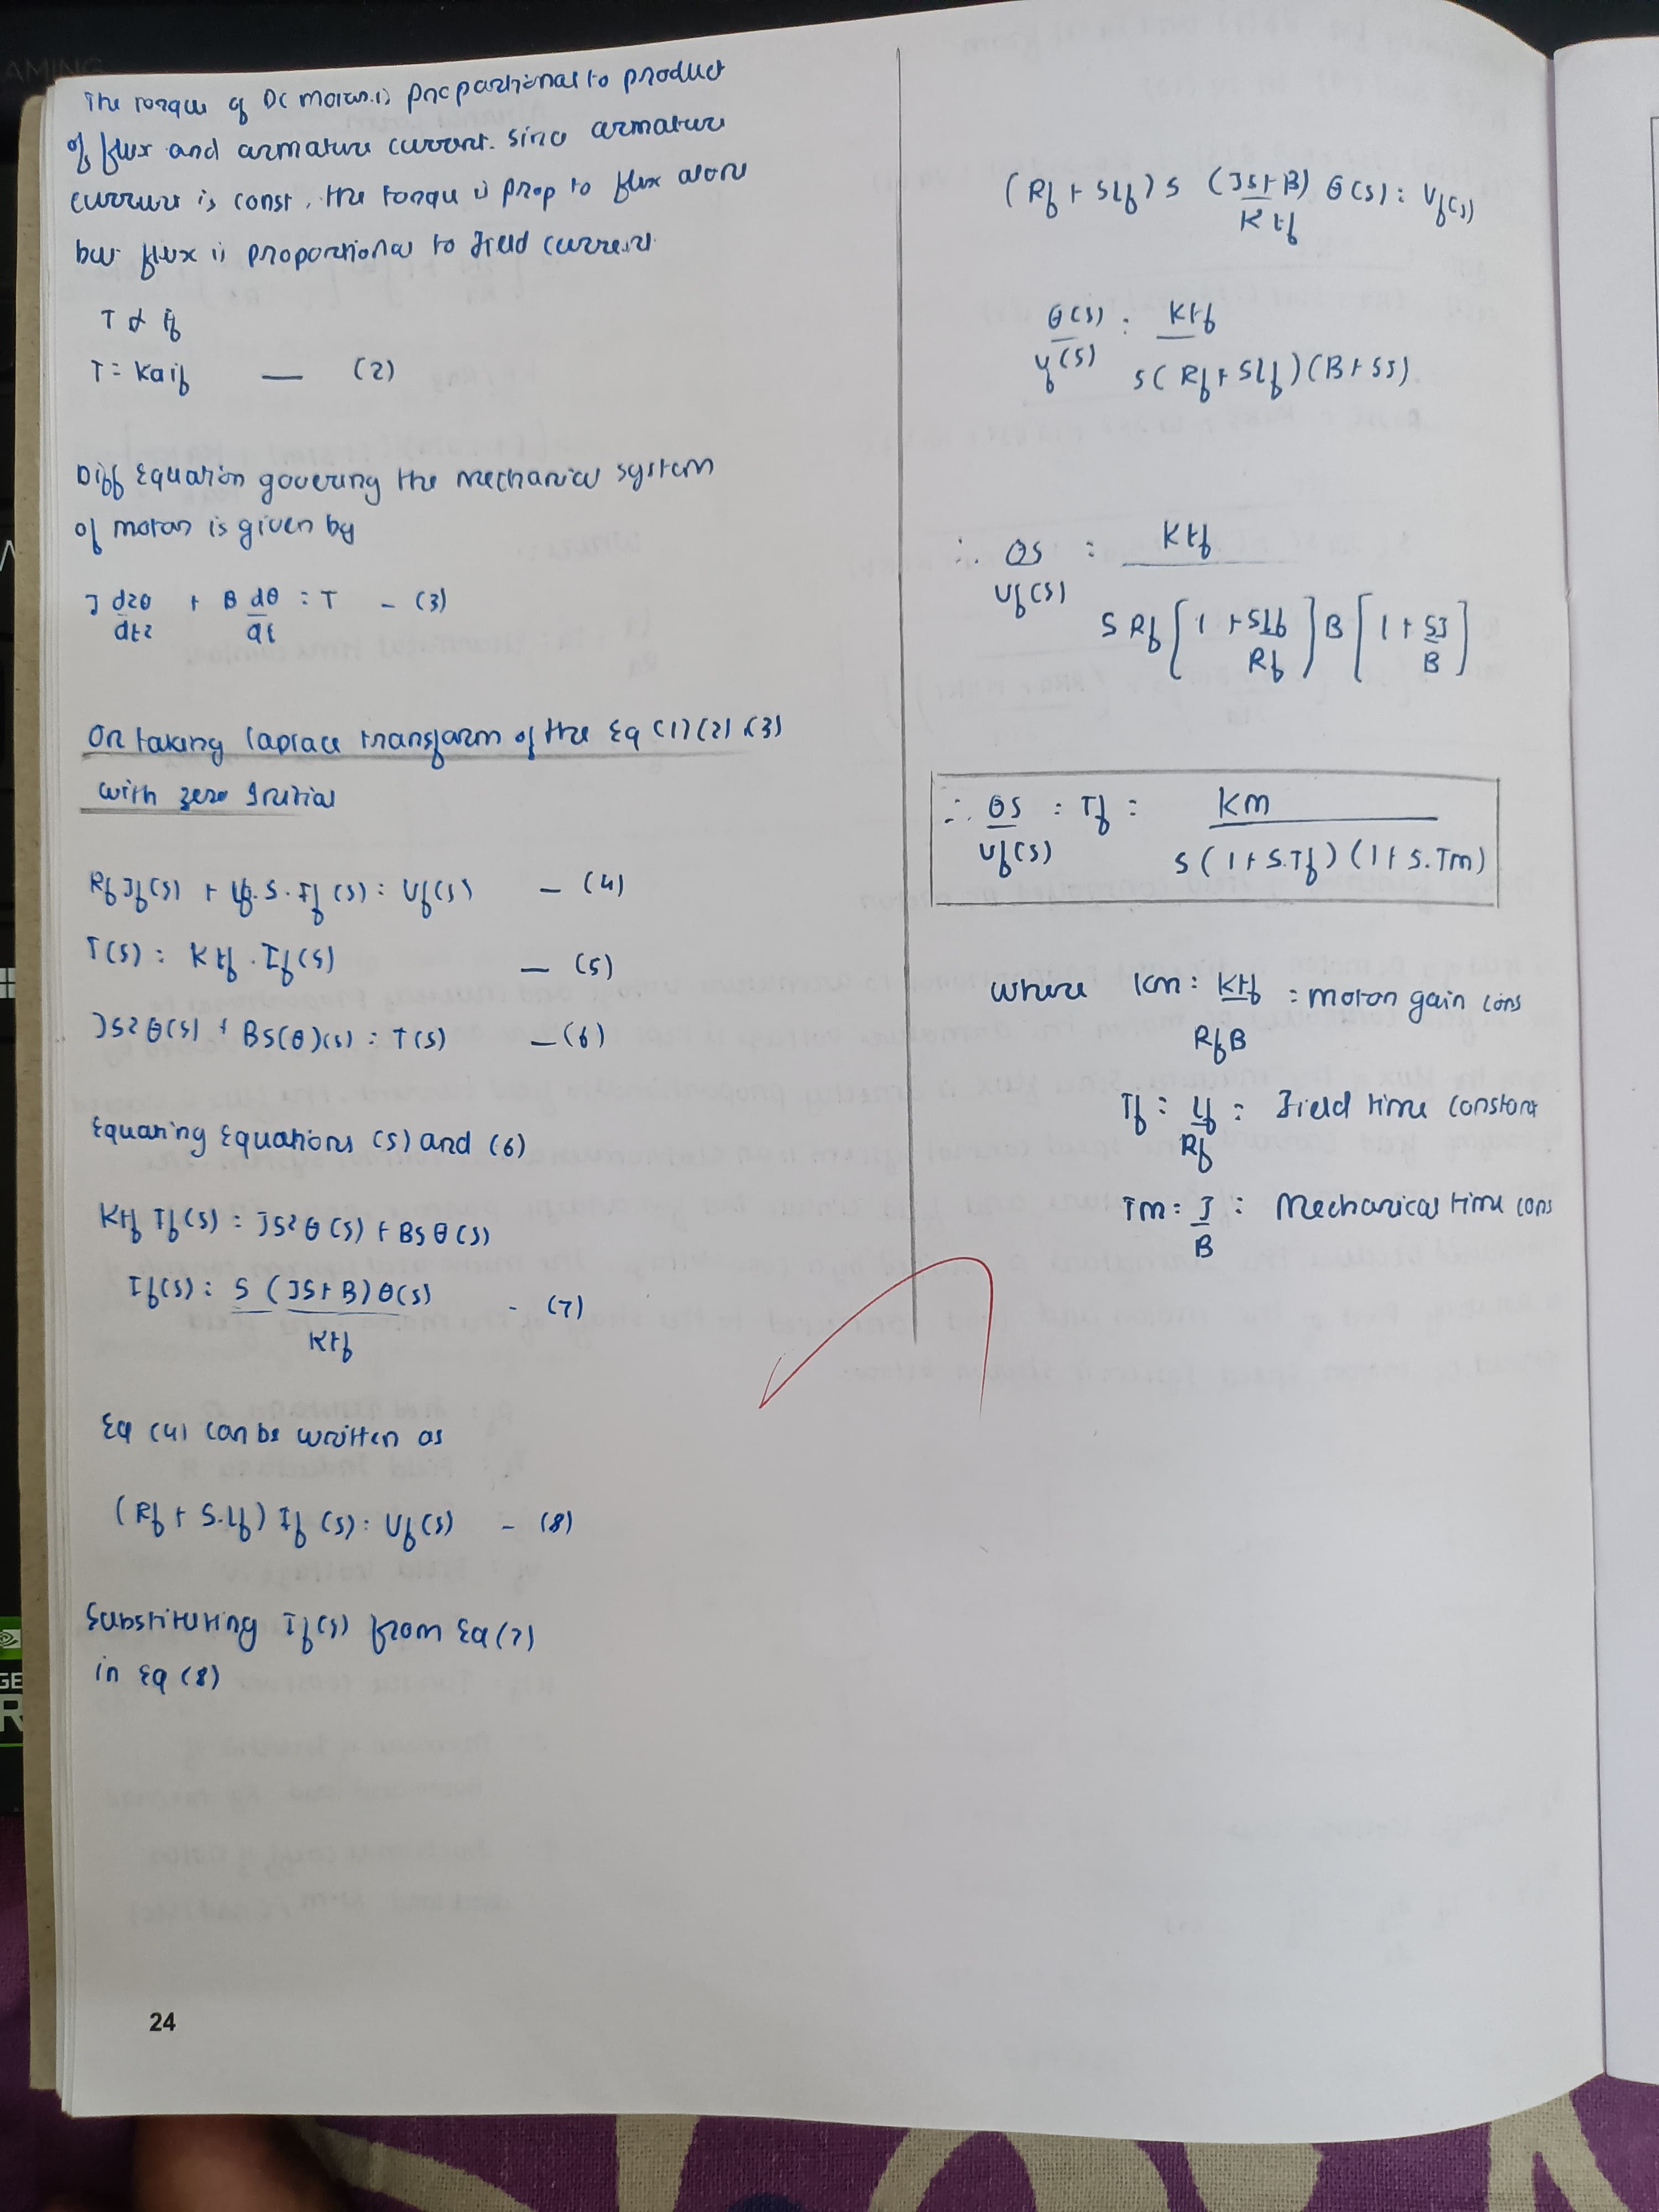 The torque of DC motor is proportional to product
of flux and armature current. sinc armature
current is const, the torque is prop to flux alone
but flux is proportional to field current
T α if
T = Kaif — (2)
Diff Equation governing the mechanical system
of motor is given by
J d2θ/dt2 + B dθ/dt = T - (3)
On taking laplace transform of the Eq (1)(2)(3)
with zero Initial
RfIf(s) + Lf.S.If(s) = Vf(s) - (4)
T(s) = Ktf.If(s) — (5)
JS2θ(s) + BS(θ)(s) = T(s) — (6)
Equating Equations (5) and (6)
Ktf If(s) = JS2θ(s) + BSθ(s)
If(s) = S (JS+B)θ(s)/Ktf - (7)
Eq (4) can be written as
(Rf + S.Lf) If (s) = Vf(s) - (8)
Substituting If(s) from Eq (7)
in Eq (8)
24
(Rf + SLf) S (JS+B)/Ktf θ(s) = Vf(s)
θ(s)/Vf(s) = Ktf/S(Rf + SLf)(B+SJ)
∴ θS/Vf(s) = Ktf/S Rf [1 + SLf/Rf] B [1 + SJ/B]
∴ θS/Vf(s) = Tf = Km/S(1 + S.Tf)(1+ S.Tm)
where Km = Ktf/RfB = motor gain cons
Tf = Lf/Rf = Field time constant
Tm = J/B = Mechanical time cons